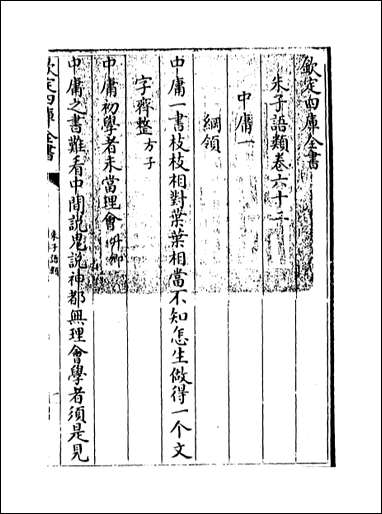 欽定四庫全書
朱子語類卷六十二
中庸一
綱領
中庸一書枝枝相對葉葉相當不知怎生做得一个文
字齊整方子
中庸初學者未當理會升卿
中庸之書難看中間說鬼說神都無理會學者須是見
欽定四庫全書
朱子語類